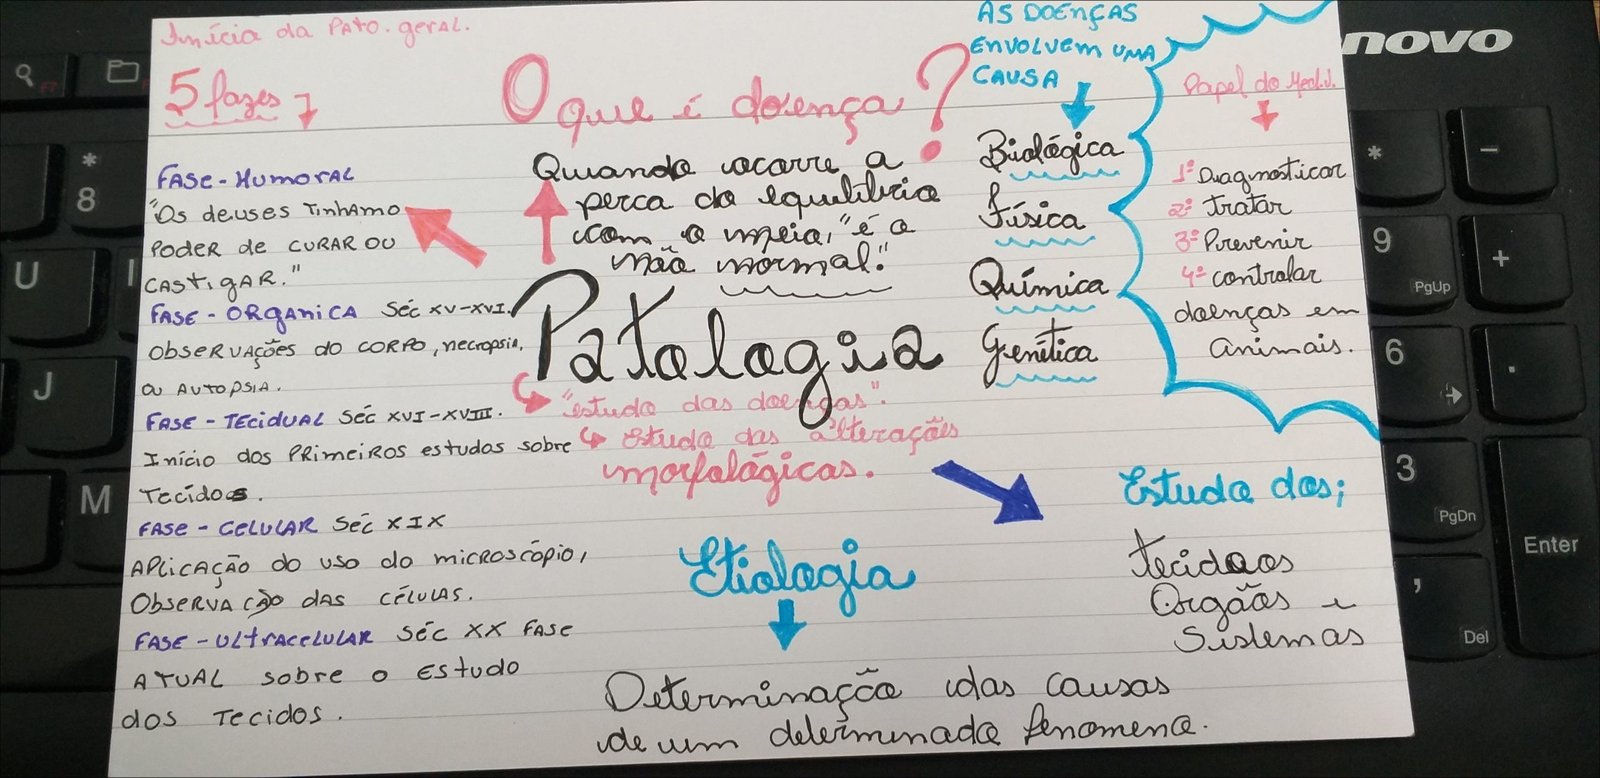 Início da Pato. geral.
5 fazes
FASE - HUMORAL
"Os deuses TINHAM O
PODER de CURAR OU
CASTIGAR."
FASE - ORGANICA SÉC XV-XVI.
OBSERVAÇÕES DO CORPO, necropsia,
OU AUTOPSIA.
FASE - TECIDUAL SÉC XVI-XVIII.
Início dos PRIMEIROS estudos sobre
Tecidos.
FASE - CELULAR SÉC XIX
APLICAÇÃO do uso do microscópio,
OBSERVACÃO DAS CÉLULAS.
FASE - ULTRACELULAR SÉC XX FASE
ATUAL sobre o ESTUDO
dos Tecidos.
O que é doença?
Quando ocorre a
perca do equilíbrio
com o meio, "é o
não normal."
Patologia
"estudo das doenças".
Estudo das alterações
morfológicas.
Etiologia
Determinação das causas
de um determinado fenomeno.
AS DOENÇAS
ENVOLVEM UMA
CAUSA
Biológica
Física
Química
Genética
Papel do Med.V.
1º Diagnosticar
2º tratar
3º Previnir
4º controlar
doenças em
animais.
Estudo dos;
Tecidos
Orgãos e
Sistemas
novo
F7
*
8
U
I
J
M
*
-
9
PgUp
+
6
.
3
PgDn
Enter
,
Del